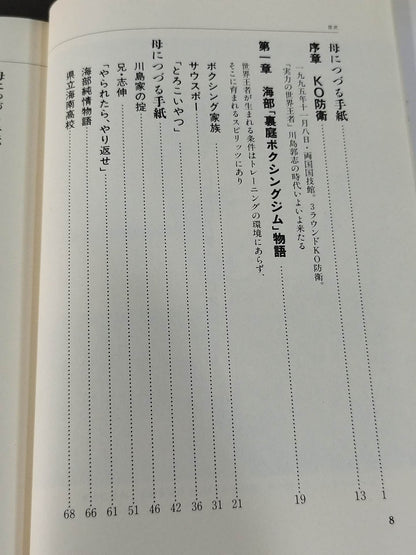 目次
母につづる手紙 1
序章 KO防衛 13
一九九五年十一月八日・両国国技館。3ラウンドKO防衛。
「実力の世界王者」川島郭志の時代いよいよ来たる
第一章 海部「裏庭ボクシングジム」物語 19
世界王者が生まれる条件はトレーニングの環境にあらず、
そこに育まれるスピリッツにあり
ボクシング家族 21
サウスポー 31
「とろこいやつ」 36
母につづる手紙 42
川島家の掟 46
兄・志伸 51
「やられたら、やり返せ」 61
海部純情物語 66
県立海南高校 68
8